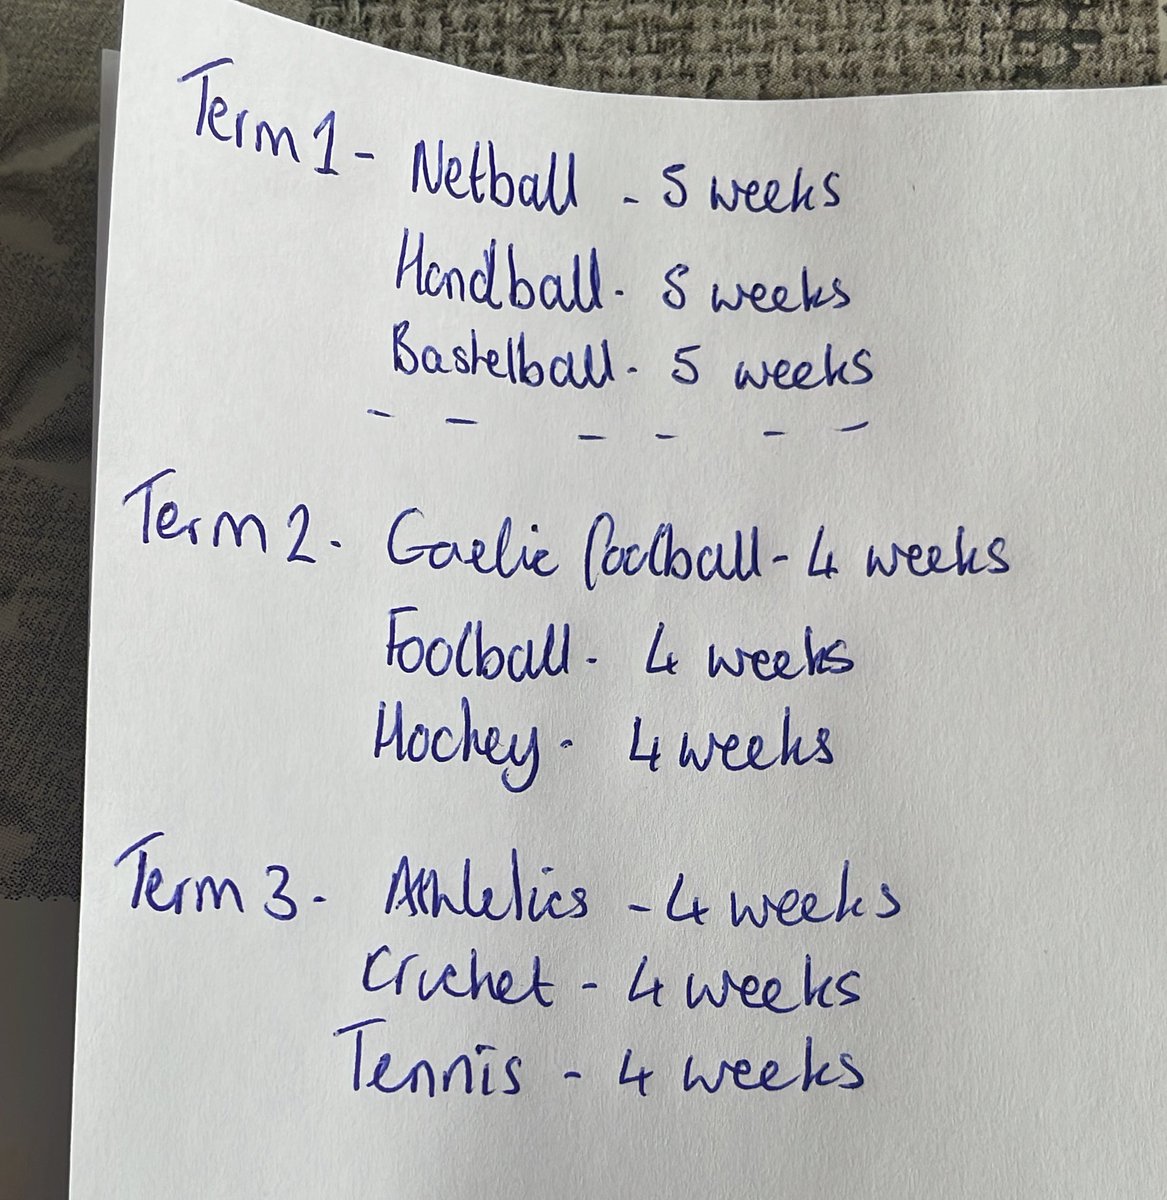 Term 1 - Netball - 5 weeks
Handball - 5 weeks
Basketball - 5 weeks
- - - - - -
Term 2 - Gaelic football - 4 weeks
Football - 4 weeks
Hockey - 4 weeks
Term 3 - Athletics - 4 weeks
Cricket - 4 weeks
Tennis - 4 weeks